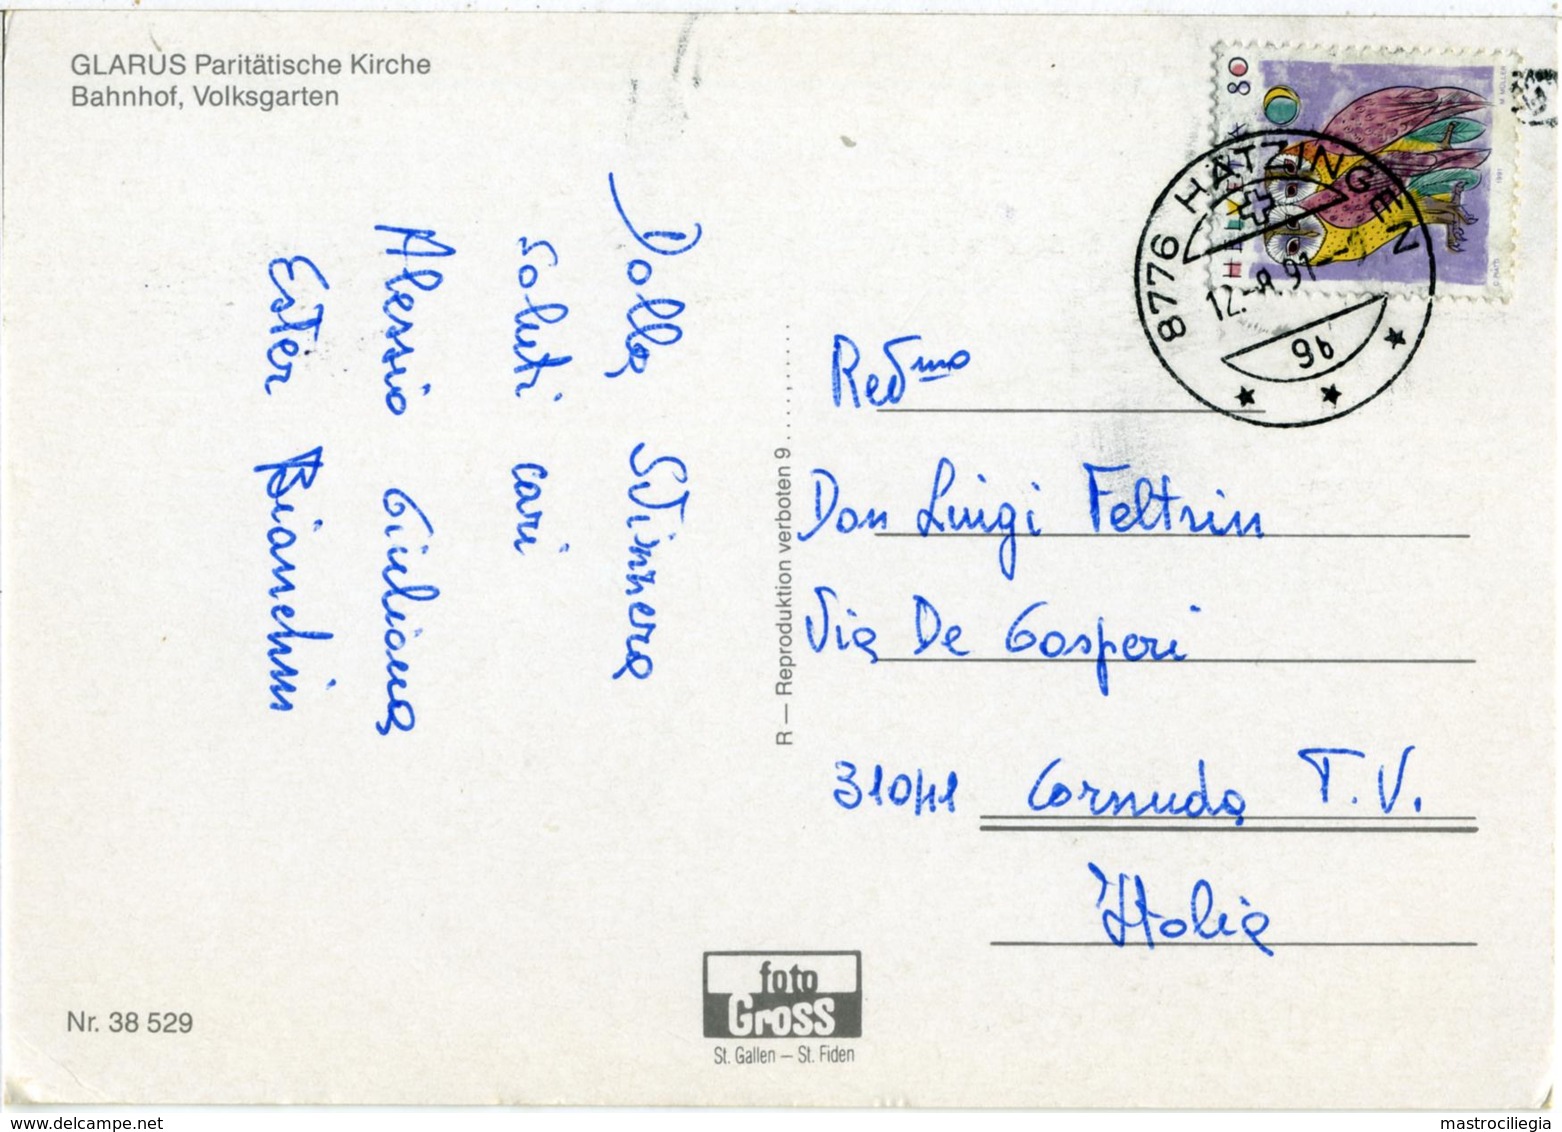 GLARUS Paritätische Kirche
Bahnhof, Volksgarten
Dalla Svizzera
saluti cari
Alessio Giuliana
Ester Bianchin
Nr. 38 529
R — Reproduktion verboten 9........
foto
Gross
St. Gallen — St. Fiden
80
HELVETIA
M. MÜLLER
1991
8776 HÄTZINGEN
12.-8.91
9b
Rev mo
Don Luigi Feltrin
Via De Gasperi
31041 Cornuda T.V.
Italia
mastrociliegia